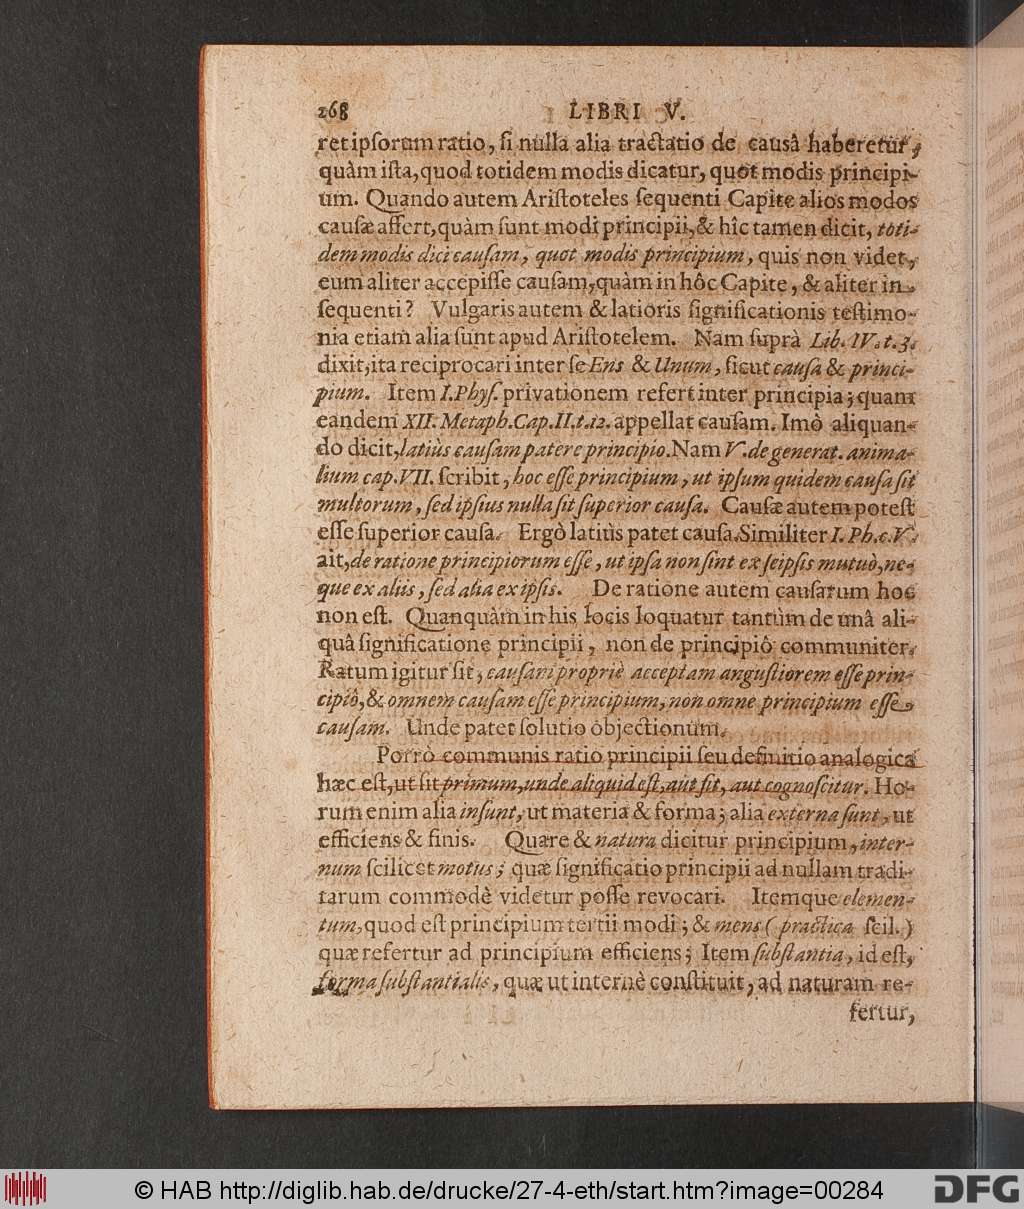 268 LIBRI V.
ret ipſorum ratio, ſi nulla alia tractatio de cauſâ haberetur,
quàm iſta, quod totidem modis dicatur, quot modis principi-
um. Quando autem Ariſtoteles ſequenti Capite alios modos
cauſæ affert, quàm ſunt modi principii, & hîc tamen dicit, toti-
dem modis dici cauſam, quot modis principium, quis non videt,
eum aliter accepiſſe cauſam, quàm in hôc Capite, & aliter in
ſequenti? Vulgaris autem & latioris ſignificationis teſtimo-
nia etiam alia ſunt apud Ariſtotelem. Nam ſuprà Lib. IV. t. 3.
dixit, ita reciprocari inter ſe Ens & Unum, ſicut cauſa & princi-
pium. Item I. Phyſ. privationem refert inter principia; quam
eandem XII. Metaph. Cap. II. t. 12. appellat cauſam. Imò aliquan-
do dicit, latiùs cauſam patere principio. Nam V. de generat. anima-
lium cap. VII. ſcribit, hoc eſſe principium, ut ipſum quidem cauſa ſit
multorum, ſed ipſius nulla ſit ſuperior cauſa. Cauſæ autem poteſt
eſſe ſuperior cauſa. Ergò latiùs patet cauſa. Similiter I. Ph. c. V.
ait, de ratione principiorum eſſe, ut ipſa non ſint ex ſeipſis mutuò, ne-
que ex aliis, ſed alia ex ipſis. De ratione autem cauſarum hoc
non eſt. Quanquàm in his locis loquatur tantùm de unâ ali-
quâ ſignificatione principii, non de principiô communiter.
Ratum igitur ſit, cauſam propriè acceptam anguſtiorem eſſe prin-
cipiô, & omnem cauſam eſſe principium, non omne principium eſſe
cauſam. Unde patet ſolutio objectionum.
Porrò communis ratio principii ſeu definitio analogica
hæc eſt, ut ſit primum, unde aliquid eſt, aut fit, aut cognoſcitur. Ho-
rum enim alia inſunt, ut materia & forma; alia externa ſunt, ut
efficiens & finis. Quare & natura dicitur principium, inter-
num ſcilicet motus; quæ ſignificatio principii ad nullam tradi-
tarum commodè videtur poſſe revocari. Itemque elemen-
tum, quod eſt principium tertii modi; & mens (practica ſcil.)
quæ refertur ad principium efficiens; Item ſubſtantia, id eſt,
forma ſubſtantialis, quæ ut internè conſtituit, ad naturam re-
fertur,
© HAB http://diglib.hab.de/drucke/27-4-eth/start.htm?image=00284
DFG